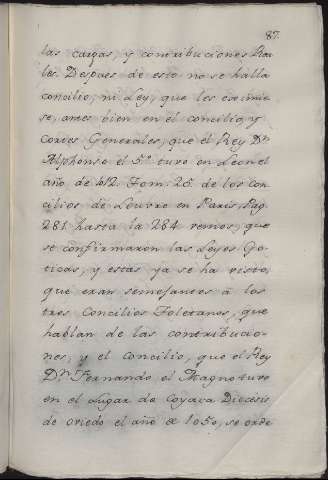 87.
las cargas, y contribuciones Rea
les. Despues de esto no se halla
concilio, ni Ley, que les eximie
se, antes bien en el concilio, y
Cortes Generales, que el Rey Dn.
Alphonso el 5º tuvo en Leon el
año de 1012. Tom. 25 de los con
cilios de Louvre en Paris Pag.
281 hasta la 284 vemos, que
se confirmaron las Leyes Go
ticas, y estas ya se ha visto,
que eran semejantes à los
tres Concilios Toletanos, que
hablan de las contribucio
nes; y el concilio, que el Rey
Dn. Fernando el Magno tuvo
en el Lugar de Coyaca Diocesis
de oviedo el año de 1050, se orde